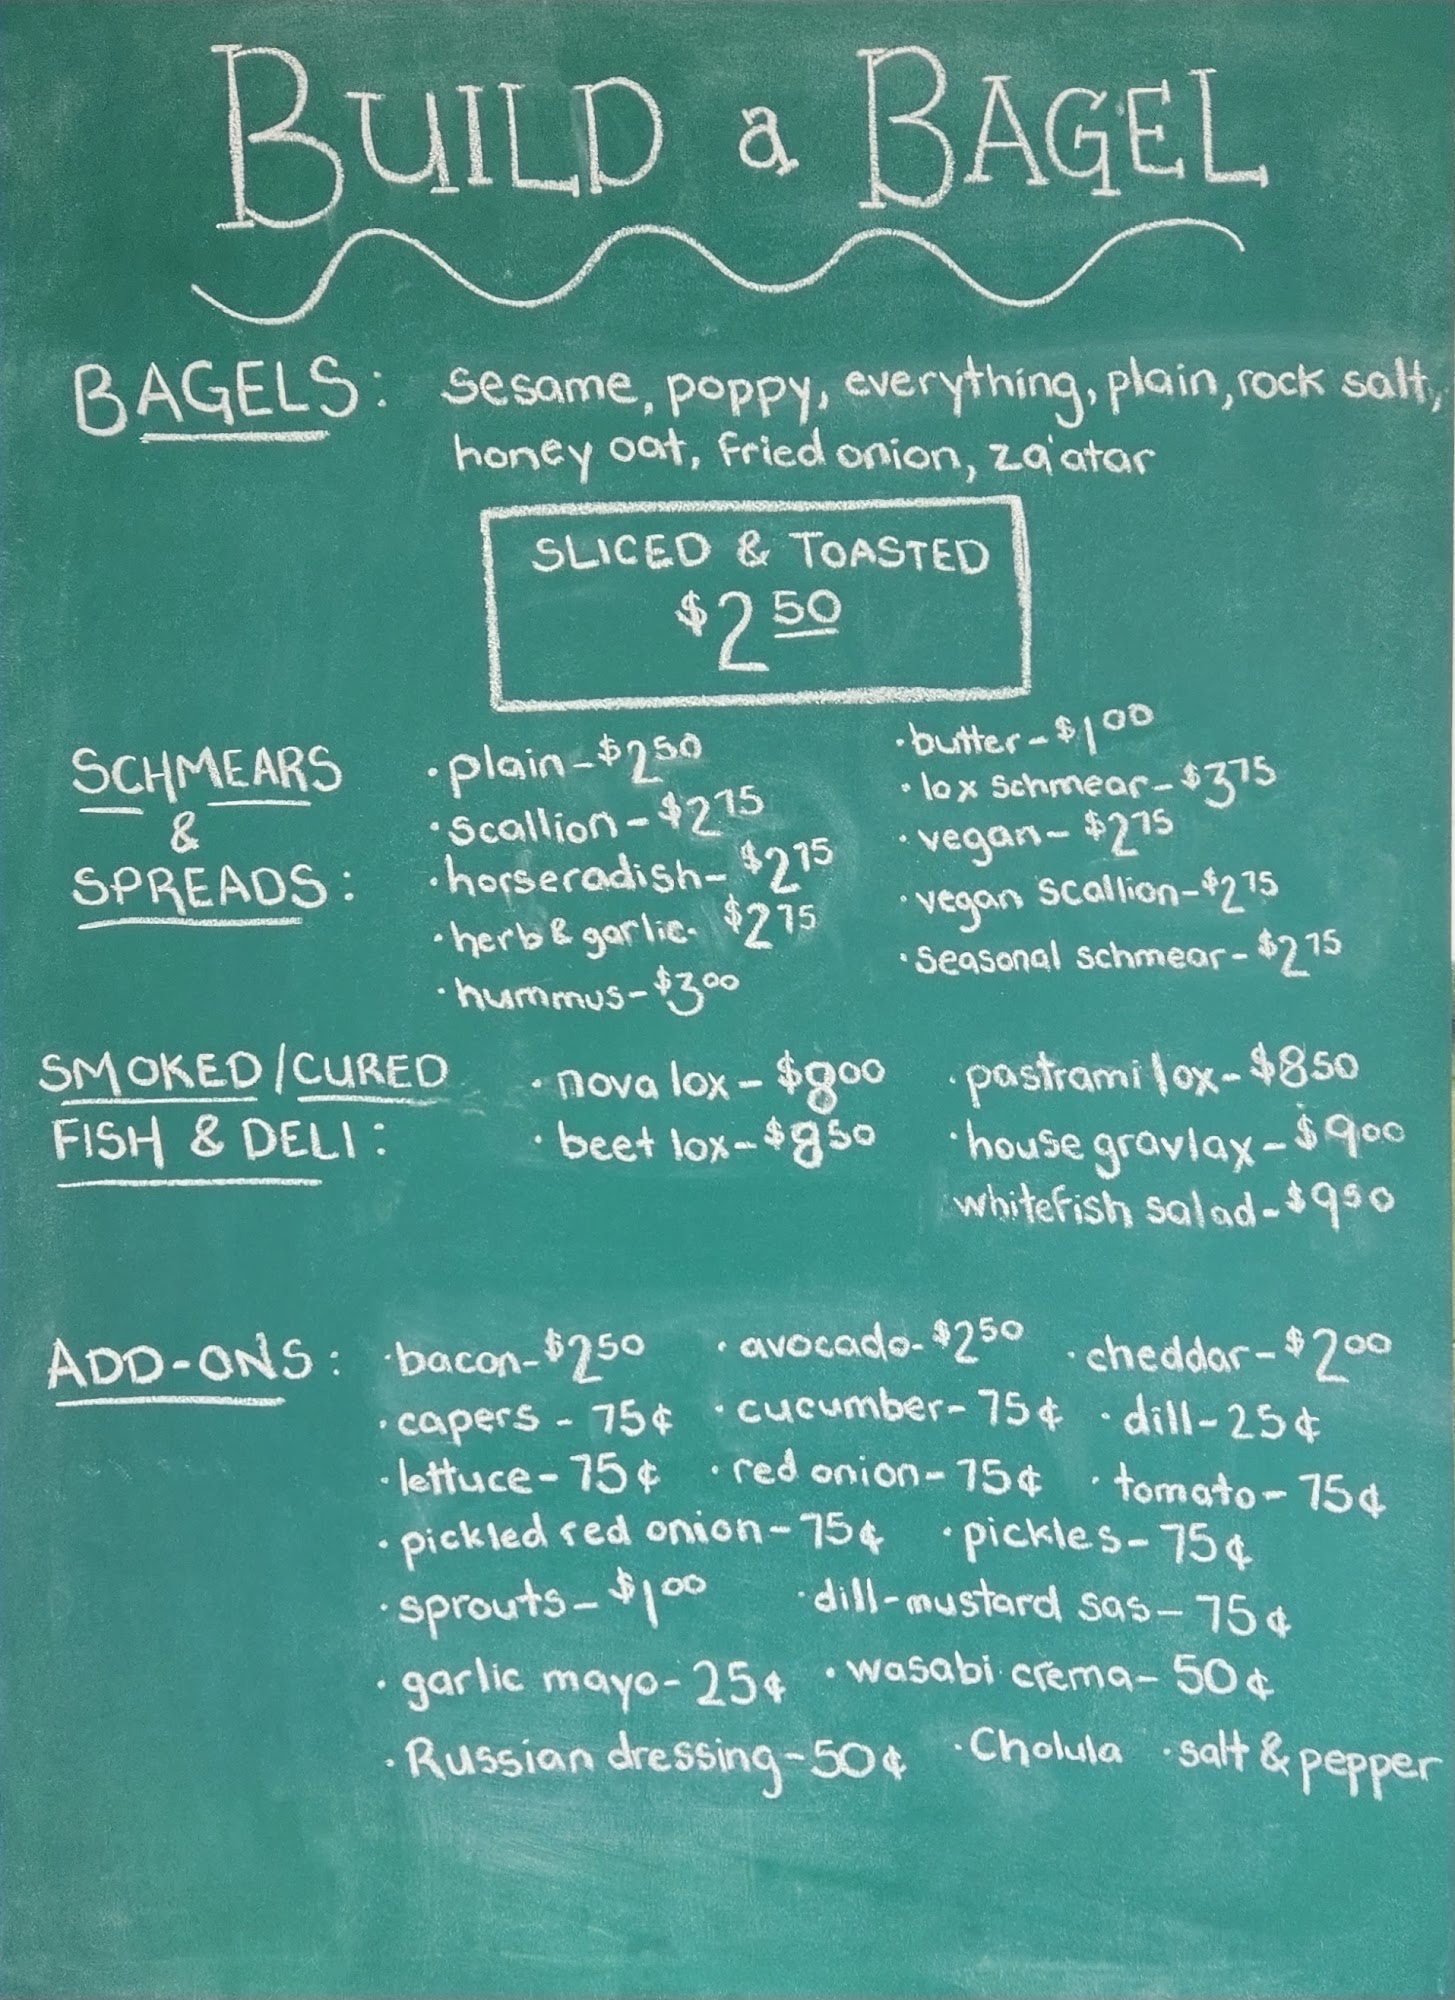 BUILD a BAGEL
BAGELS: sesame, poppy, everything, plain, rock salt,
honey oat, fried onion, za'atar
SLICED & TOASTED
$2 50
SCHMEARS
&
SPREADS:
·plain-$2 50
·scallion-$2 75
·horseradish-$2 75
·herb & garlic-$2 75
·hummus-$3 00
·butter-$1 00
·lox schmear-$3 75
·vegan-$2 75
·vegan scallion-$2 75
·seasonal schmear-$2 75
SMOKED/CURED
FISH & DELI:
·nova lox-$8 00
·beet lox-$8 50
·pastrami lox-$8 50
·house gravlax-$9 00
whitefish salad-$9 50
ADD-ONS: ·bacon-$2 50 ·avocado-$2 50 ·cheddar-$2 00
·capers-75¢ ·cucumber-75¢ ·dill-25¢
·lettuce-75¢ ·red onion-75¢ ·tomato-75¢
·pickled red onion-75¢ ·pickles-75¢
·sprouts-$1 00 ·dill-mustard sas-75¢
·garlic mayo-25¢ ·wasabi crema-50¢
·Russian dressing-50¢ ·Cholula ·salt & pepper